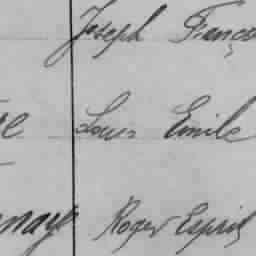 Joseph Franço
e Louis Emile
Roger Esprit